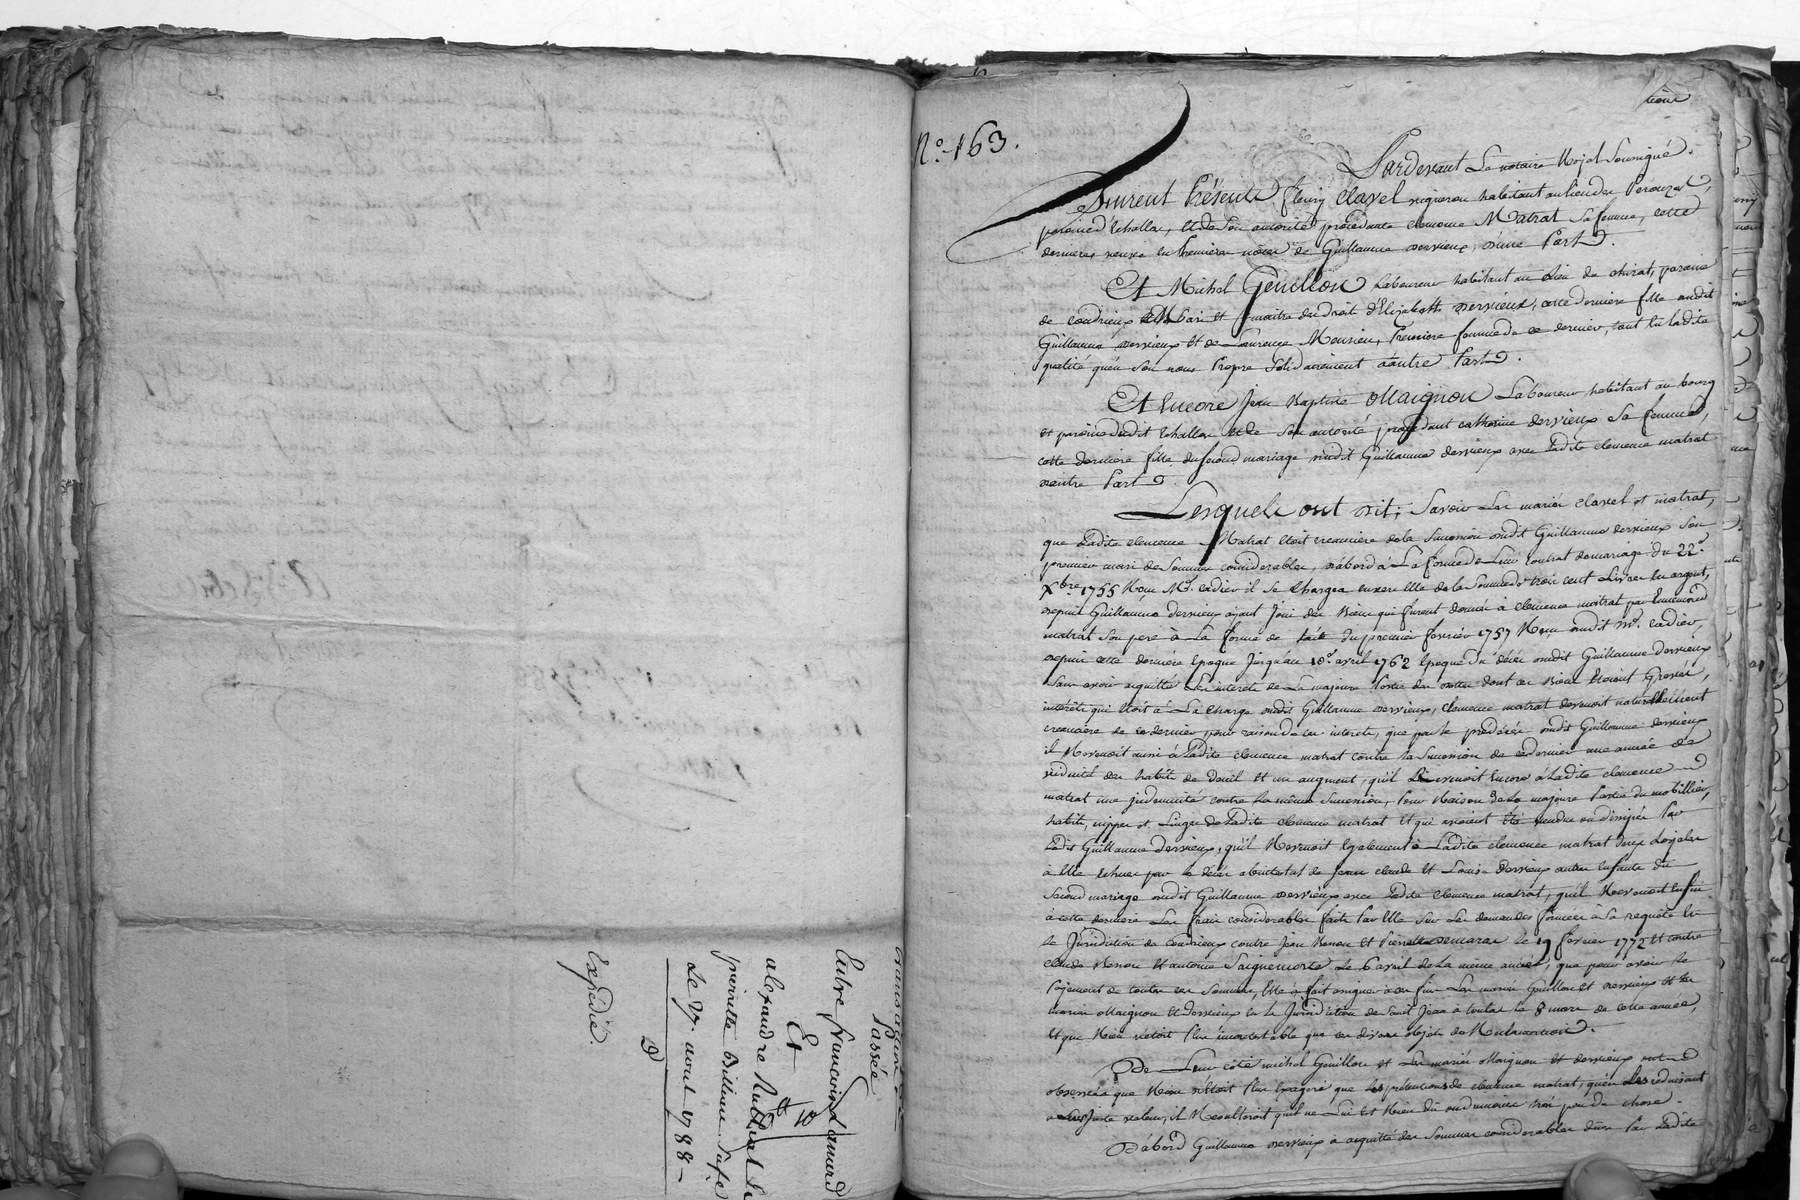 transaction
Passée
Entre francois Lamured
Et
alexandre
pierrette
Le 27. aout 1788
Expedié.
N.o 163.
Pardevant Le notaire Royal Soussigné.
furent Présents fleury Clavel vigneron habitant au lieu de
paroisse d'Echallas, et de son autorité procédante clemence Matrat sa femme, cette
derniere veuve en premieres nôces de Guillaume dervieux, d'une Part
Et Michel Genillon Laboureur habitant au Lieu de chirat, paroisse
de condrieux Mari et maitre des droits d'Elizabeth dervieux, cette derniere fille audit
Guillaume dervieux et de Laurence Mousieu, Premiere femme de ce dernier, tant en ladite
qualité qu'en son nom Propre solidairement d'autre Part.
Et Encore Jean Baptiste Maignon Laboureur habitant au bourg
et paroisse dudit Echallas et de son autorité procédant catherine dervieux sa femme,
cette derniere fille du second mariage dudit Guillaume dervieux avec Ladite clemence matrat
d'autre Part.
Lesquels ont dit; Savoir Les mariés clavel et matrat,
que Ladite clemence Matrat etoit creanciere de la succession dudit Guillaume dervieux son
premier mari de sommes considerables, d'abord à La forme de Leur contrat de mariage du 22.e
Xbre 1755 Reçu M.e cadier il se chargea envers Elle de la somme de trois cent Livres en argent,
depuis Guillaume dervieux ayant Joui des Biens qui furent donnés à clemence matrat par
matrat son pere à La forme de l'acte du premier fevrier 1757 Reçu dudit M.e cadier,
depuis cette derniere Epoque Jusqu'au 18.e avril 1762 Epoque du décès dudit Guillaume dervieux
sans avoir acquitté Les interets de La majeure Partie des dettes dont ces Biens Etoient Grevés,
intérêts qui Etoit à La charge dudit Guillaume dervieux, clemence matrat devenoit naturellement
creanciere de ce dernier pour raison de ces interets, que par le prédécès dudit Guillaume dervieux
il Revenoit aussi à Ladite clemence matrat contre la succession de ce dernier une année de
viduité des habits de deuil et un augment, qu'il Revenoit Encore à Ladite clemence
matrat une indemnité contre La même succession, Pour Raison de La majeure Partie du mobillier,
habits, nippes et Linges de Ladite clemence matrat et qui avoient Eté vendus ou dissipés Par
Ledit Guillaume dervieux, qu'il Revenoit Egalement à Ladite clemence matrat deux
à Elle Echues par le décès abintestat de Jean claude et Louis dervieux autres Enfants du
second mariage dudit Guillaume dervieux avec Ladite clemence matrat, qu'il Revenoit Enfin
à cette derniere Les frais considerables faits Par Elle sur Les demandes formées à sa requête En
la Jurisdiction de Condrieux contre Jean Renou et Pierrette le 19 fevrier 1772 Et contre
claude Renou et antoine Saignemorte Le 6 avril de La même année, que pour avoir le
Payement de toutes ces sommes, Elle a fait assigner à ces fins Les mariés Genillon et dervieux et Les
mariés Maignon Et dervieux En la Jurisdiction de Saint Jean à toulas le 8 mars de cette année,
Et que Rien n'etoit Plus incontestable que ces divers objets de Reclamations.
De Leur côté michel Genillon et Les mariés Maignon et dervieux ont
observés que Rien n'Etoit Plus Exageré que Les prétentions de clemence matrat, qu'en Les reduisant
à Leur juste valeur, il Resulteroit qu'il ne Lui est Rien dû ou du moins très peu de chose.
D'abord Guillaume dervieux a acquitté des sommes considerables dues Par Ladite